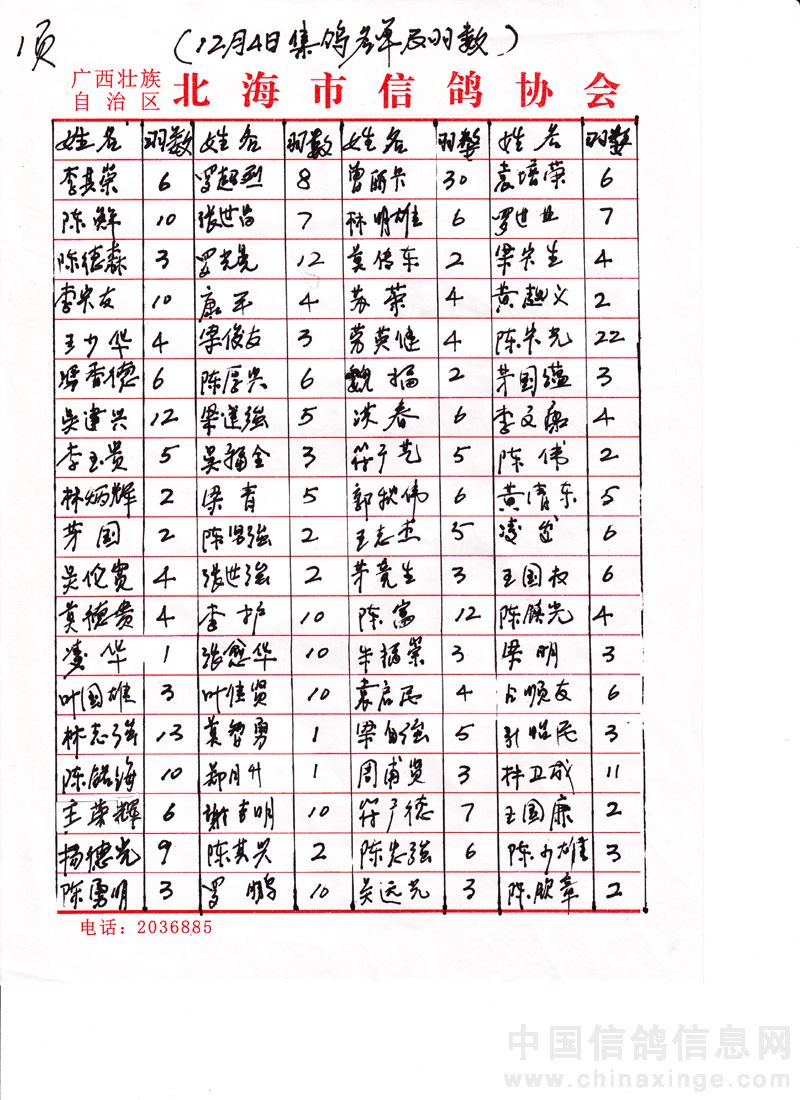 1页
(12月4日集鸽名单及羽数)
广西壮族
自治区
北海市信鸽协会
姓名 羽数 姓名 羽数 姓名 羽数 姓名 羽数
李其荣 6 罗超烈 8 曾丽兵 30 袁培荣 6
陈鲜 10 张世昌 7 林明雄 6 罗世业 7
陈德森 3 罗光亮 12 莫传东 2 梁宗生 4
李宗友 10 康军 4 苏荣 4 黄超义 2
王少华 4 梁俊友 3 劳英健 4 陈朱光 22
香德 6 陈厚兴 6 魏福 2 茅国蕴 3
吴建兴 12 梁道强 5 洪春 6 李文康 4
李玉贵 5 吴福全 3 符广芝 5 陈伟 2
林炳辉 2 梁青 5 郭秋伟 6 黄清东 5
劳国 2 陈贤强 2 王志杰 5 凌 6
吴伦宽 4 张世强 2 茅竟生 3 王国权 6
莫德贵 4 李护 10 陈富 12 陈颜光 4
凌华 1 张愈华 10 朱福荣 3 梁明 3
叶国雄 3 叶佳贤 10 袁启民 4 占顺友 6
林志强 13 莫智勇 1 梁自强 5 民 3
陈铭海 10 郑月升 1 周甫贤 3 林卫成 11
王荣辉 6 谢吉明 10 符广德 7 王国康 2
杨德光 9 陈其兴 2 陈志强 6 陈少雄 3
陈勇明 3 罗鹏 10 吴远光 3 陈欣章 2
电话：2036885
中国信鸽信息网
www.chinaxinge.com